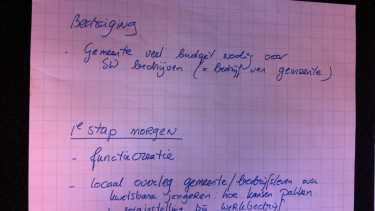 Bedreiging
- Gemeente veel budget nodig voor
SW bedrijven (= bedrijf van gemeente)
1e stap morgen
- functiecreatie
- locaal overleg gemeente/bedrijfsleven over
kwetsbare jongeren: hoe kansen pakken.
bij werkbedrijf